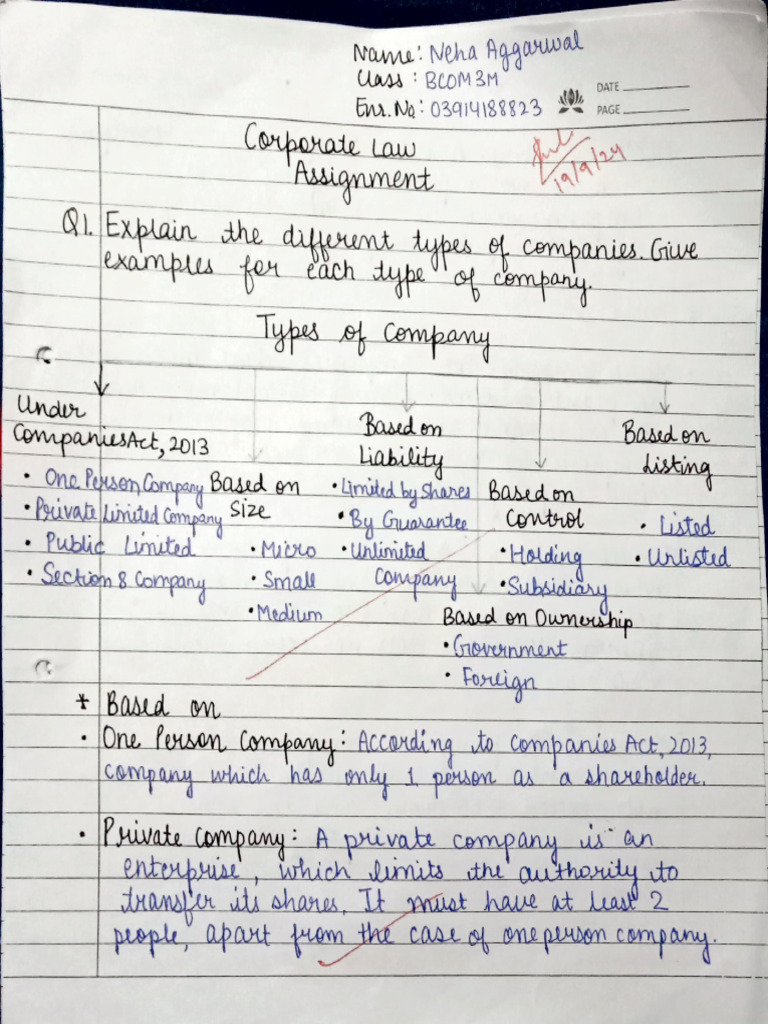 Name: Neha Aggarwal
Class: BCOM 3M
Enr. No: 03914188823
DATE
PAGE
Corporate Law
Assignment
19/9/24
Q1. Explain the different types of companies. Give
examples for each type of company.
Types of Company
Under
Companies Act, 2013
• One Person Company
• Private Limited Company
• Public Limited
• Section 8 Company
Based on
Size
• Micro
• Small
• Medium
Based on
Liability
• Limited by Shares
• By Guarantee
• Unlimited
Company
Based on
Control
• Holding
• Subsidiary
Based on Ownership
• Government
• Foreign
Based on
Listing
• Listed
• Unlisted
* Based on
• One Person Company: According to Companies Act, 2013,
company which has only 1 person as a shareholder.
• Private Company: A private company is an
enterprise, which limits the authority to
transfer its shares. It must have at least 2
people, apart from the case of one person company.